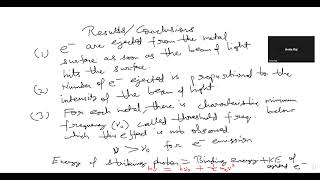 Results/Conclusions
(1) e⁻ are ejected from the metal
surface as soon as the beam of light
hits the surface.
(2) Number of e⁻ ejected is proportional to the
intensity of the beam of light
(3) For each metal, there is characteristic minimum
frequency (ν₀) called threshold freq. below
which this effect is not observed
ν > ν₀ for e⁻ emission
Energy of striking photon = Binding energy + KE of
e⁻